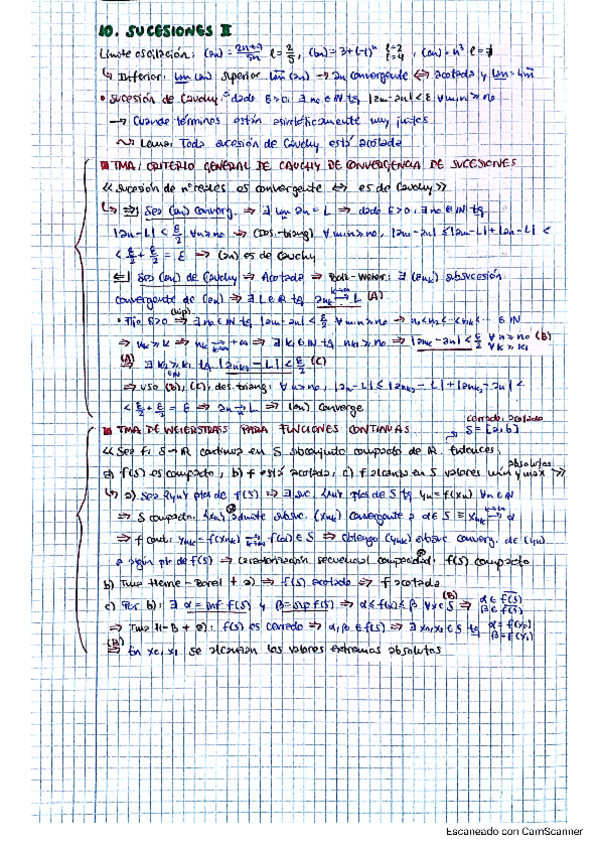 10. SUCESIONES II
Límite oscilación: (an) = 2n+7/5n l = 2/5, (bn) = 3+(-1)^n { l=2 l=4, (cn) = n³ l=∄
↳ Inferior: lim (an) superior lim (an) → an convergente ⇔ acotada y lim = lim
• Sucesión de Cauchy: dado ε>0, ∃ n₀ ∈ ℕ tq |am-an| < ε ∀m,n ≥ n₀
→ Cuando términos están asintóticamente muy juntos
↝ Lema: Toda sucesión de Cauchy está acotada
TMA: CRITERIO GENERAL DE CAUCHY DE CONVERGENCIA DE SUCESIONES
<< Sucesión de nº reales es convergente ⇔ es de Cauchy >>
↳ ⇒| Sea (an) converg. ⇒ ∃ lim an = L ⇒ dado ε>0, ∃ n₀ ∈ ℕ tq
|an-L| < ε/2 ∀n>n₀ ⇒ (Des. triang) ∀m,n>n₀, |am-an| ≤ |am-L|+|an-L| <
< ε/2 + ε/2 = ε ⇒ (an) es de Cauchy
⇐| Sea (an) de Cauchy ⇒ Acotada ⇒ Bolz-Weier: ∃ (ank) subsucesión
convergente de (an) ⇒ ∃ L ∈ ℝ tq ank → L (A)
• Fijo ε>0 (hip) ⇒ ∃ n₀ ∈ ℕ tq |am-an| < ε/2 ∀m,n>n₀ ⇒ n₁<n₂<...<nk<... ∈ ℕ
⇒ nk ≥ k ⇒ nk → +∞ ⇒ ∃ k₁ ∈ ℕ tq nk₁ ≥ n₀ ⇒ |ank-an| < ε/2 ∀n≥n₀ ∀k≥k₁ (B)
(A) ⇒ ∃ k₂ ≥ k₁ tq |ank₂ - L| < ε/2 (C)
⇒ uso (B), (C), des. triang: ∀n>n₀, |an-L| ≤ |ank₂ - L| + |ank₂-an| <
< ε/2 + ε/2 = ε ⇒ an → L ⇒ (an) converge
cerrado, acotado
TMA DE WEIERSTRASS PARA FUNCIONES CONTINUAS → S = [a,b]
<< Sea f: S→ℝ continua en S subconjunto compacto de ℝ. Entonces:
a) f(S) es compacto, b) f está acotada, c) f alcanza en S valores min y max absolutos >>
↳ a) Sea {yn} ptos de f(S) ⇒ ∃ suc. {xn} ptos de S tq yn = f(xn) ∀n ∈ ℕ
⇒ S compacto: {xn} admite subsuc. (xnk) convergente a α ∈ S ≡ xnk → α
⇒ f cont: ynk = f(xnk) → f(α) ∈ S ⇒ obtengo (ynk) subsuc converg. de (yn)
a algún pto de f(S) ⇒ caracterización secuencial compacidad: f(S) compacto
b) Tma Heine-Borel + a) ⇒ f(S) acotado ⇒ f acotada
c) Por b): ∃ α = inf f(S) y β = sup f(S) ⇒ α ≤ f(x) ≤ β ∀x ∈ S (B) ⇒ α ∈ f(S) β ∈ f(S)
⇒ Tma H-B + a): f(S) es cerrado ⇒ α, β ∈ f(S) ⇒ ∃ x₀, x₁ ∈ S tq α = f(x₀) β = f(x₁)
(B) ⇒ En x₀, x₁ se alcanzan los valores extremos absolutos
Escaneado con CamScanner